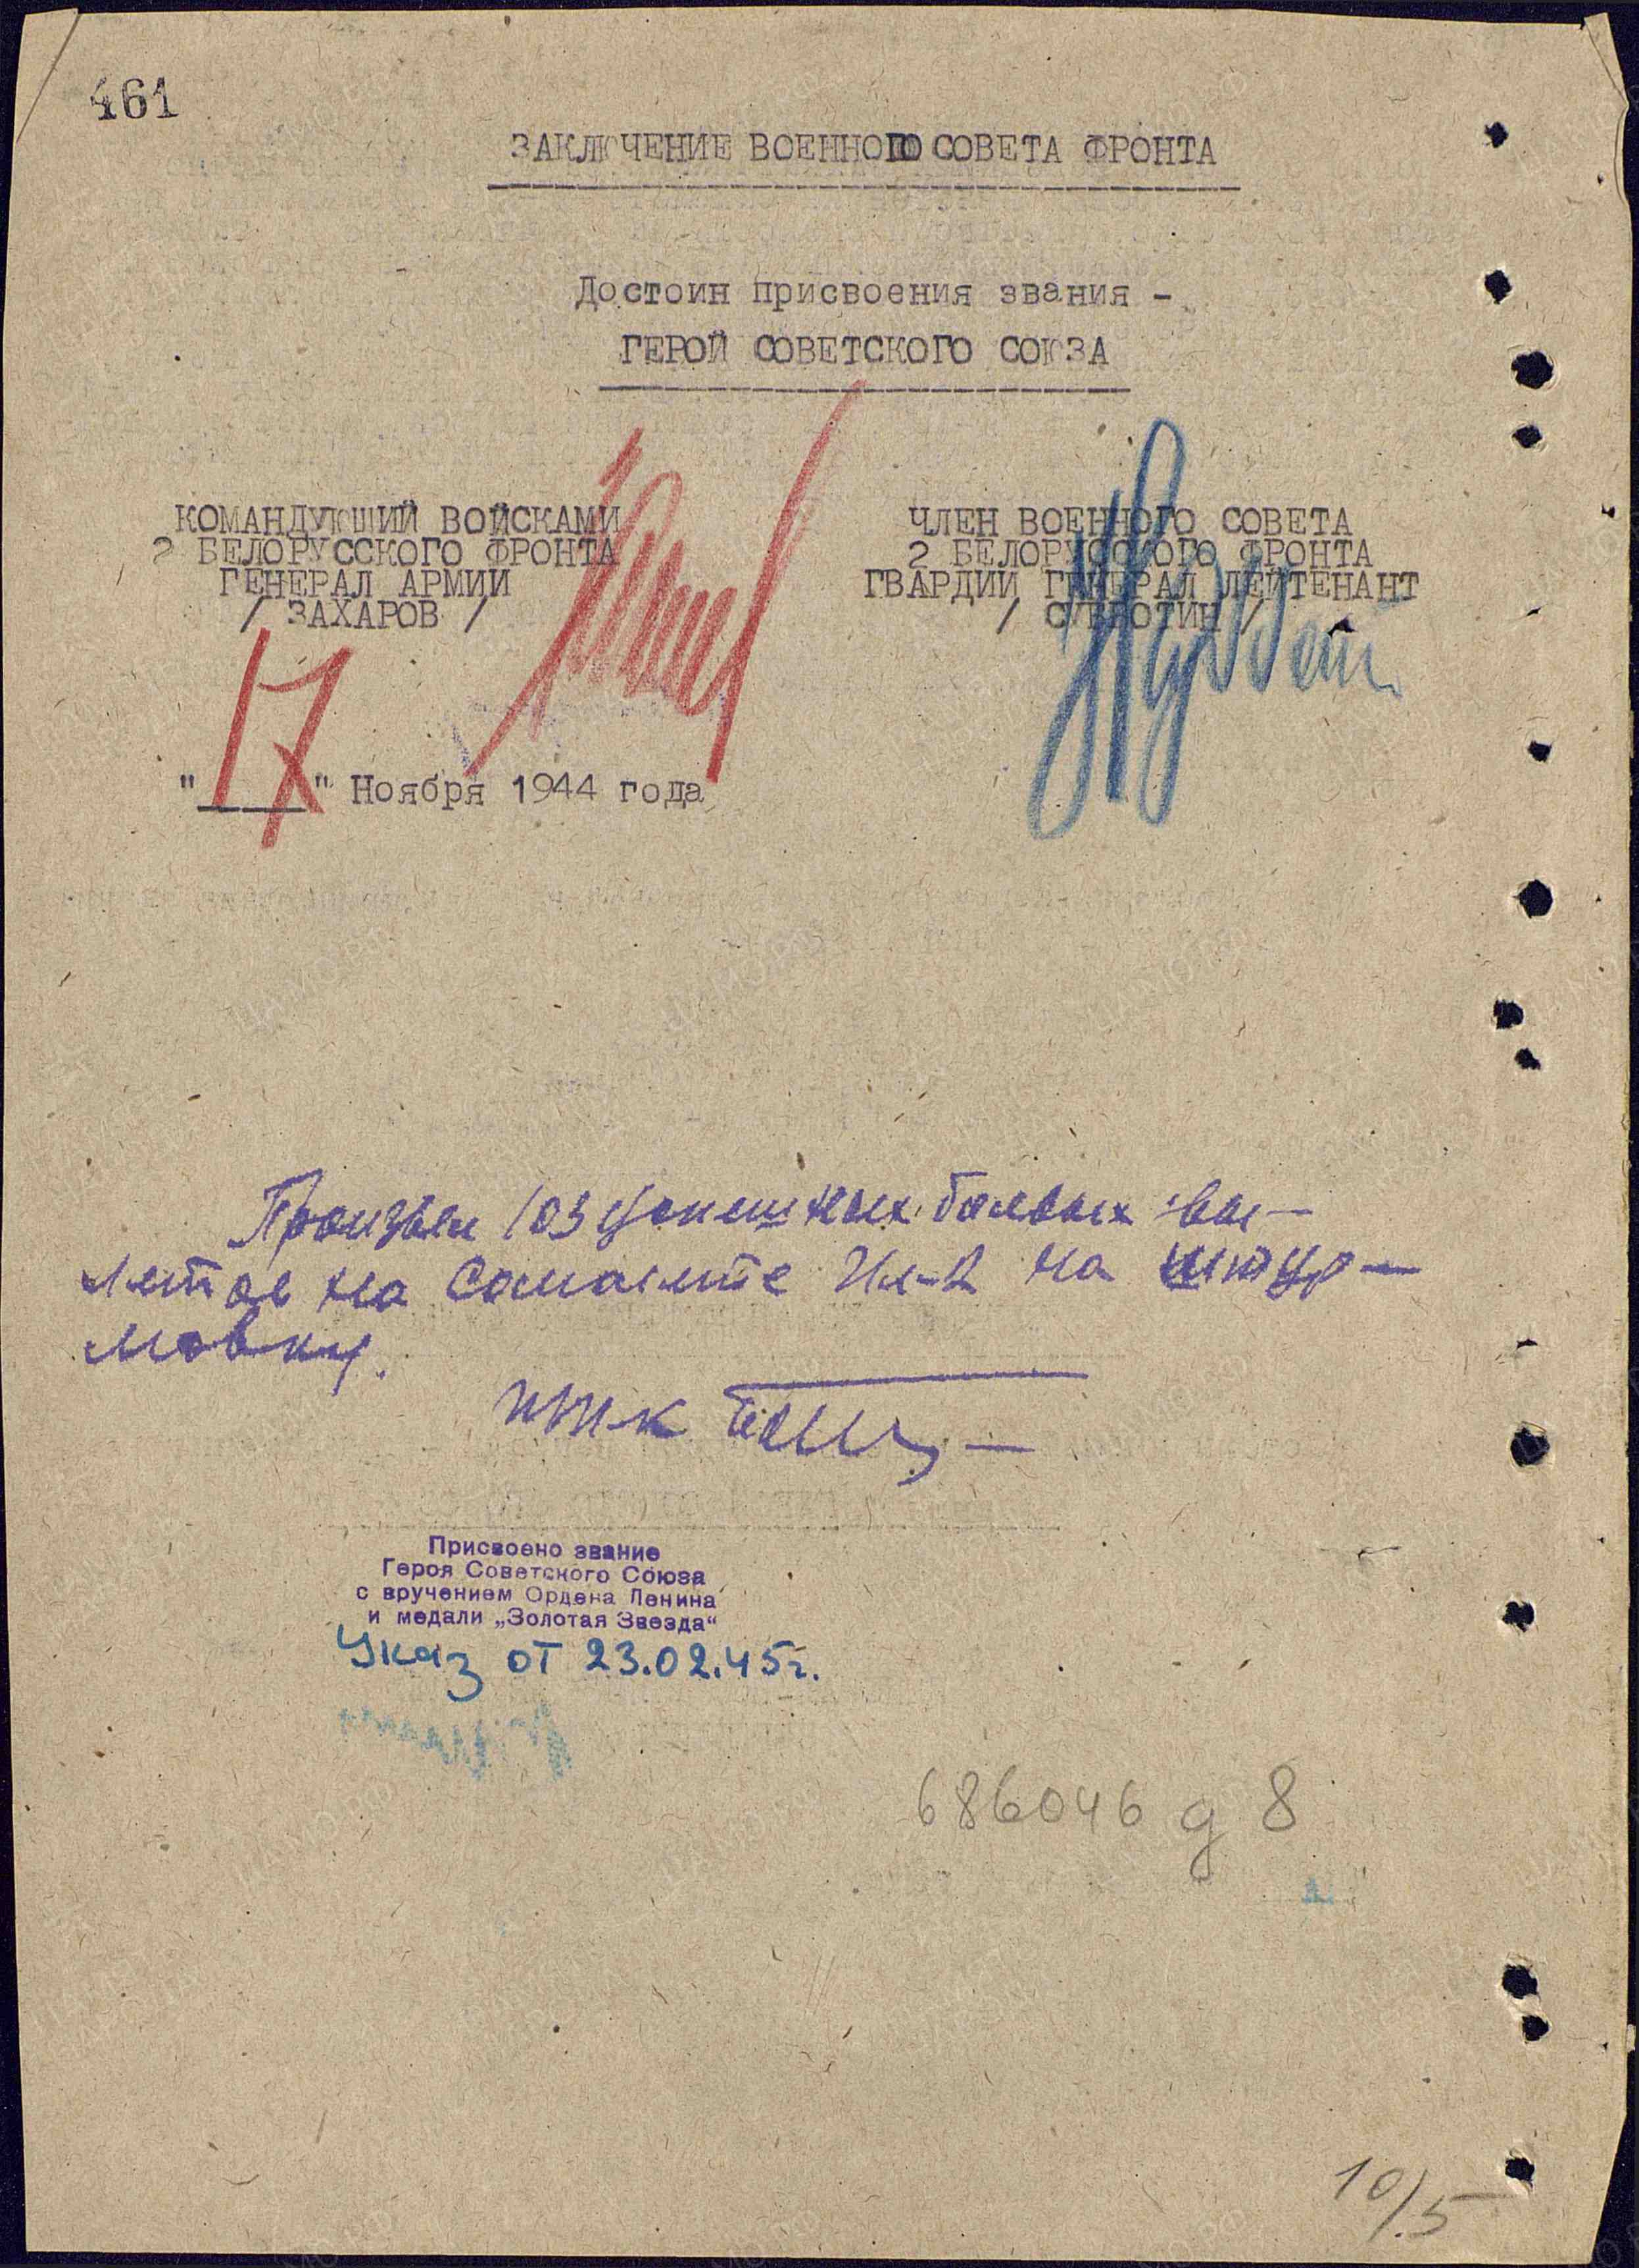 461
ЗАКЛЮЧЕНИЕ ВОЕННОГО СОВЕТА ФРОНТА
Достоин присвоения звания -
ГЕРОЙ СОВЕТСКОГО СОЮЗА
КОМАНДУЮЩИЙ ВОЙСКАМИ
2 БЕЛОРУССКОГО ФРОНТА
ГЕНЕРАЛ АРМИИ
/ ЗАХАРОВ /
ЧЛЕН ВОЕННОГО СОВЕТА
2 БЕЛОРУССКОГО ФРОНТА
ГВАРДИИ ГЕНЕРАЛ ЛЕЙТЕНАНТ
/ СУББОТИН /
"17" Ноября 1944 года
Произвел 103 успешных боевых вы-
летов на самолете Ил-2 на штур-
мовку.
Присвоено звание
Героя Советского Союза
с вручением Ордена Ленина
и медали „Золотая Звезда“
Указ от 23.02.45г.
686046 д 8
10/5